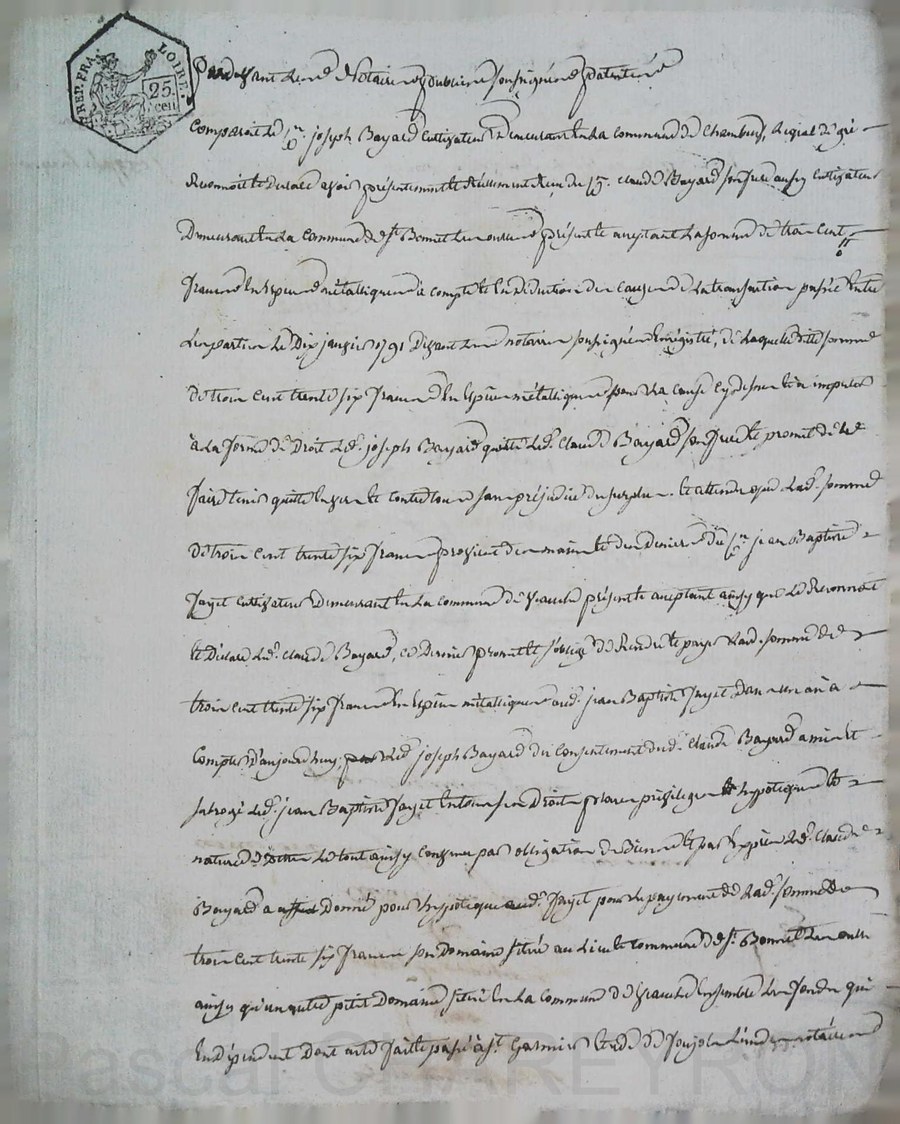 REP. FRA. LOIRE.
25. cen
Pardevant Les nres Notaires publics soussignés patentés
Comparoit le Sr. joseph Bayard Cultivateur Demeurant En La Commune de Chambeuf, Lequel de gré
Reconnoit et declare avoir présentement et Réellement Reçu du Sr. Claude Bayard son frere aussy Cultivateur
Demeurant En La Commune de St. Bonnet Les oulles présent et acceptant La somme de trois Cent
francs En Espece métallique à compte et En Deduction des Causes de La transaction passée Entre
Les parties Le Dix janvier 1791 Devant Les notaires soussignés Enregistré, de Laquelle ditte somme
de trois Cent trente six francs En Espece métallique pour La Cause Cy dessus et à imputer
à La forme de Droit Led. joseph Bayard quitte Led. Claude Bayard son frere et promet de le
faire tenir quitte Envers et Contre tous sans préjudice du surplus. Et attendu que Lad. somme
de trois Cent trente six francs provient des mains et des deniers du Sr. jean Baptiste
Jayet Cultivateur Demeurant En La Commune de Veauche présent et acceptant ainsy que Le Reconnoit
et Déclare Led. Claude Bayard, Ce Dernier promet et s'oblige de Rendre et payer Lad. somme de
trois Cent trente six francs En Espece métallique aud. jean Baptiste Jayet Dans un an à
Compter d'aujourdhuy, Led. joseph Bayard du Consentement dud. Claude Bayard a mis et
subrogé Led. jean Baptiste Jayet En tous ses Droits privileges et hypotheques et
nature de Le tout ainsy Convenu par obligation de Biens et par Exprès Led. Claude
Bayard a donné pour hypoteque aud. Jayet pour Le payement de Lad. somme de
trois Cent trente six francs son Domaine situé au Lieu et Commune de St. Bonnet Les oulles
ainsy qu'un autre petit Domaine situé En La Commune de Veauche Ensemble Les fonds qui
En dépendent Dont acte fait et passé à St. Galmier Etude de L'un des notaires